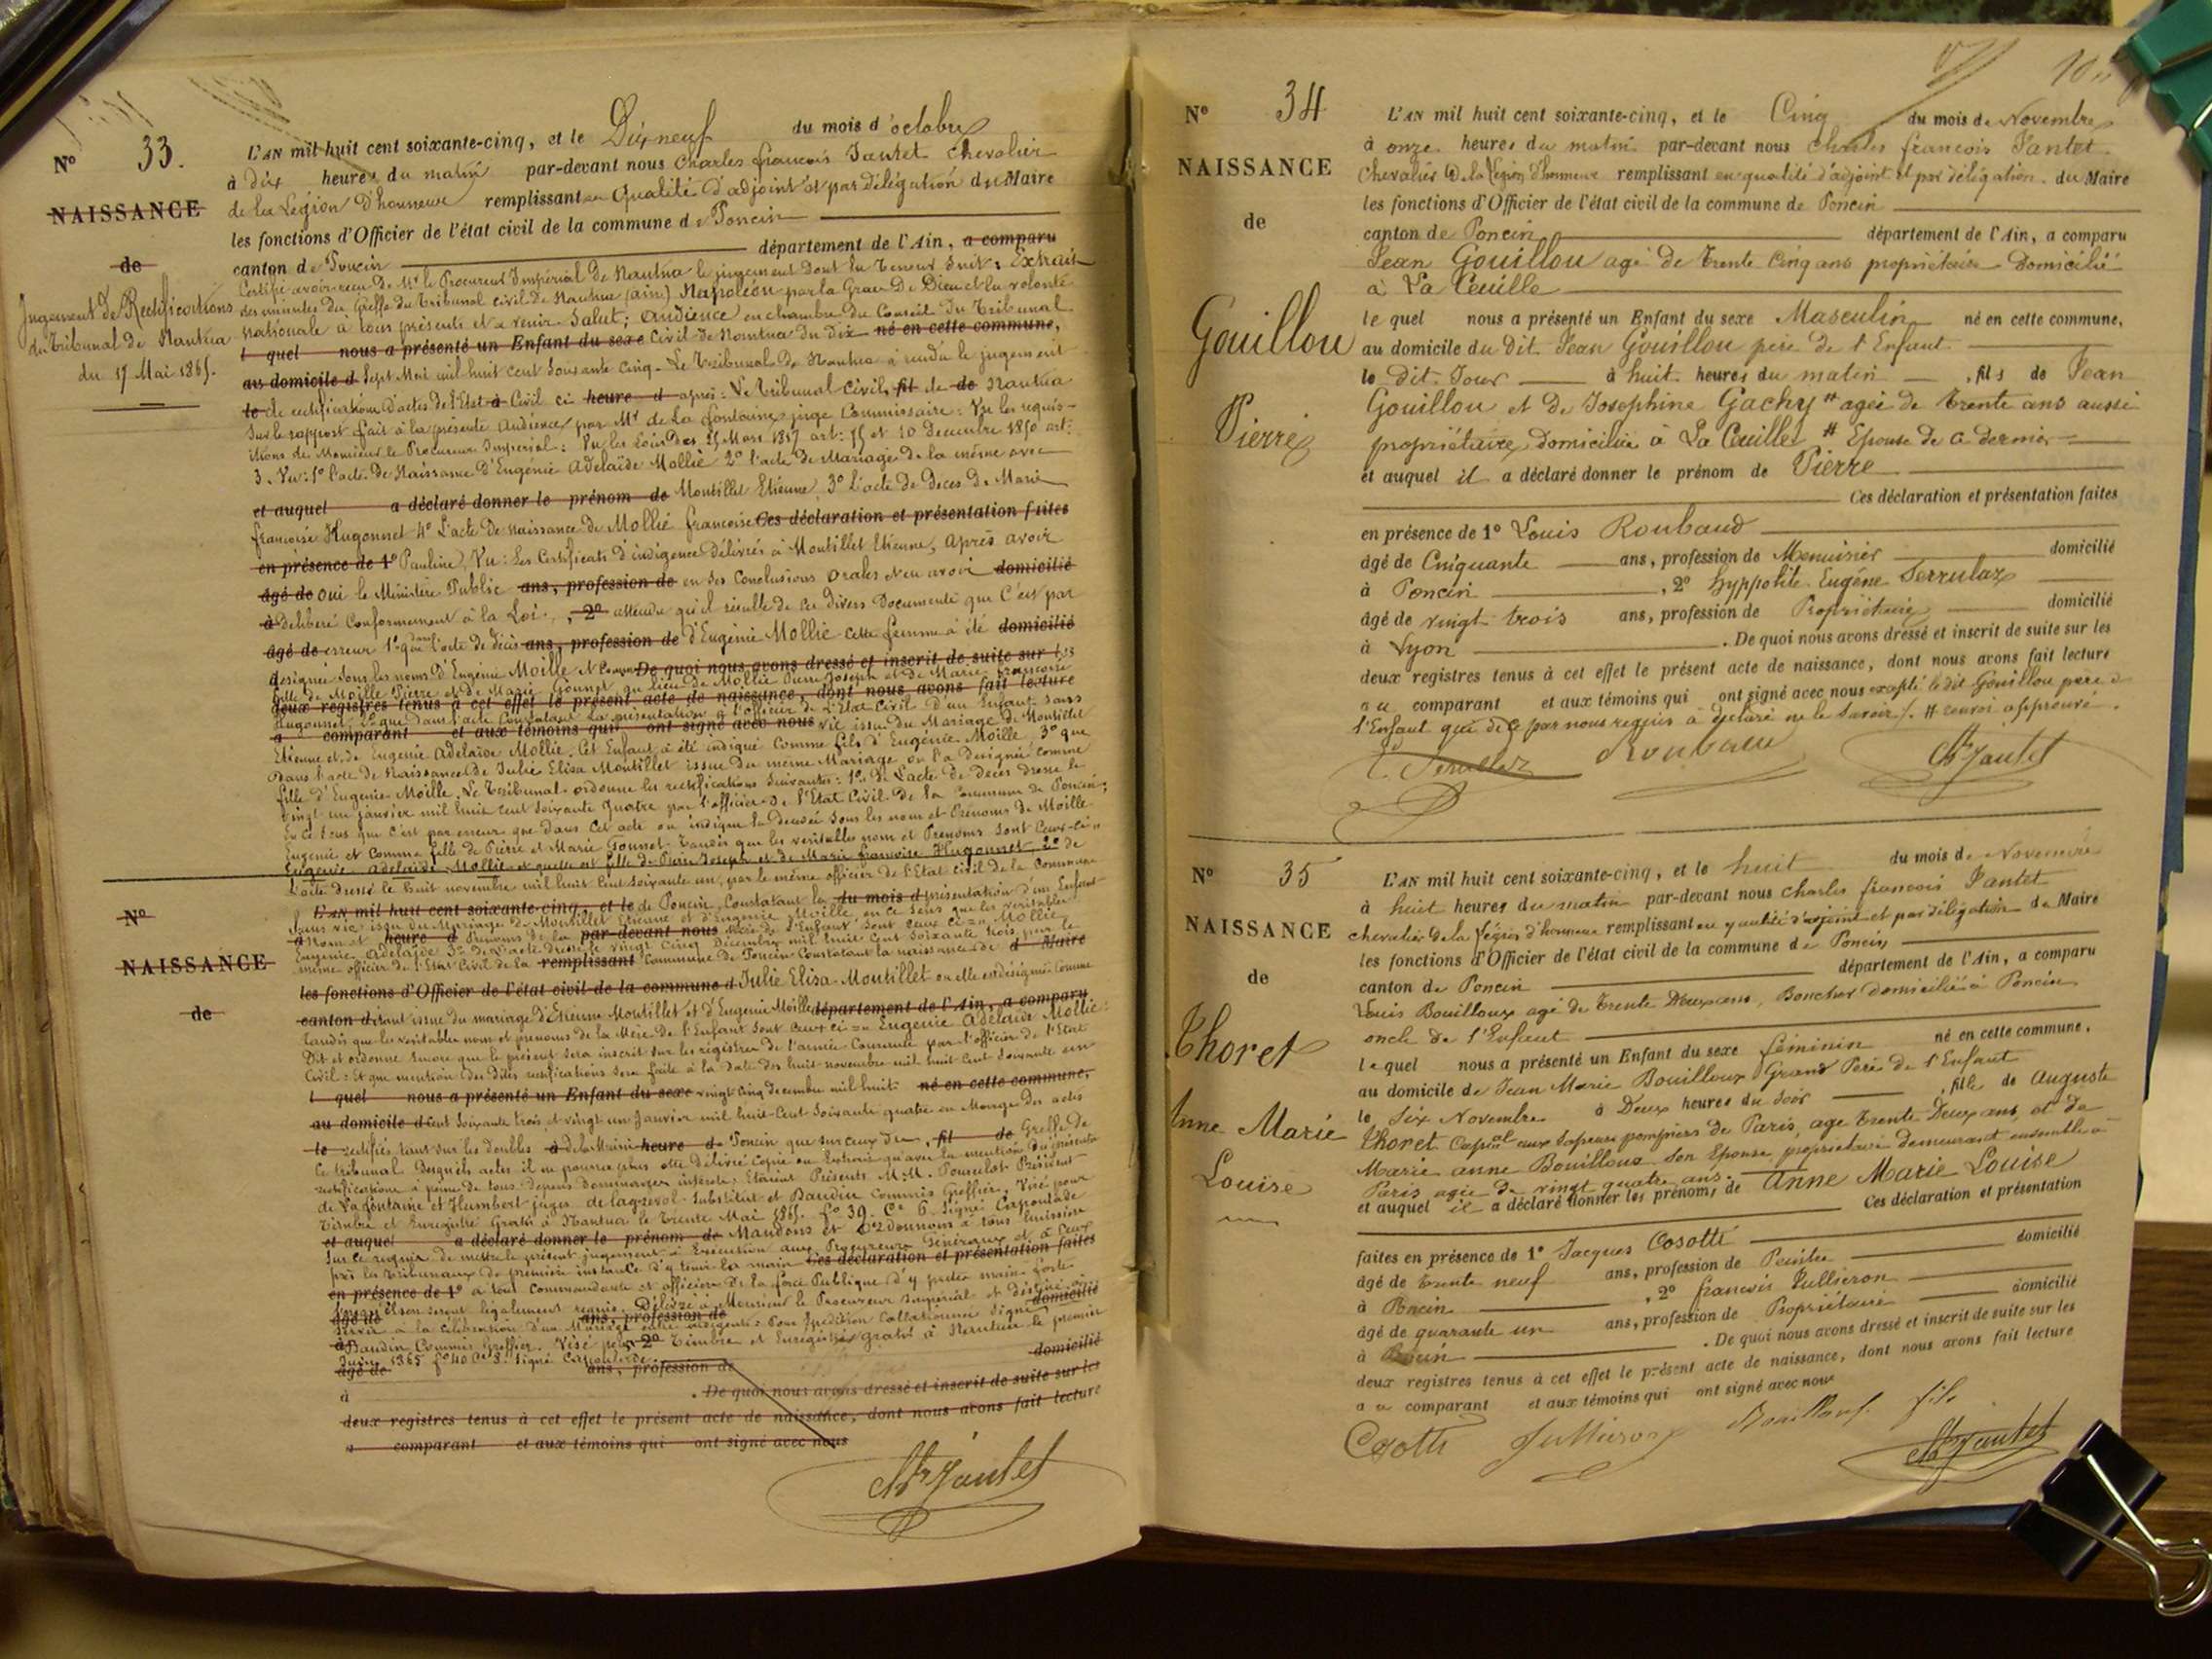 N° 33.
NAISSANCE
de
Jugement de Rectifications
du Tribunal de Nantua
du 17 Mai 1865.
L'AN mil huit cent soixante-cinq, et le Dix neuf du mois d'octobre
à dix heures du matin par-devant nous Charles françois Jantet chevalier
de la Légion d'honneur remplissant en Qualité d'adjoint et par délégation du Maire
les fonctions d'Officier de l'état civil de la commune de Poncin
canton de Poncin département de l'Ain, a comparu
Certifie avoir reçu de Mr le Procureur Impérial de Nantua le jugement dont la teneur suit: Extrait
des minutes du Greffe du Tribunal civil de Nantua (ain) Napoléon par la Grace de Dieu et la volonté
nationale à tous présents et a venir Salut; audience en chambre du Conseil du Tribunal
l quel nous a présenté un Enfant du sexe Civil de Nantua du dix né en cette commune,
au domicile d Sept Mai mil huit cent soixante cinq. Le Tribunal de Nantua a rendu le jugement
le de rectifications d'actes de l'Etat à Civil ci heure d après: Le Tribunal Civil, fil de de Nantua
Sur le rapport fait à la présente audience par Mr de La fontaine juge Commissaire: Vu les requis-
itions de Monsieur le Procureur Imperial: Vu les Lois des 25 Mars 1817 art: 75 et 10 Decembre 1850 art:
3. Vu: 1° l'acte de Naissance d'Eugenie Adelaïde Mollie 2° l'acte de Mariage de la même avec
et auquel a déclaré donner le prénom de Montillet Etienne, 3° L'acte de Deces de Marie
françoise Hugonnet 4° L'acte de naissance de Mollié françoise Ces déclaration et présentation faites
en présence de 1° Pauline, Vu: Les Certificats d'indigence délivrés à Montillet Etienne, après avoir
âgé de oui le Ministère Public ans, profession de en ses Conclusions orales et en avoir domicilié
à deliberé Conformement à la Loi, 2° attendu qu'il résulte de ces divers Documents que C'est par
âgé de erreur 1° que dans l'acte de décès ans, profession de d'Eugénie Mollié cette femme a été domicilié
désignée sous les noms d'Eugénie Moille et comme De quoi nous avons dressé et inscrit de suite sur les
fille de Moille Pierre et de Marie Gonnet au lieu de Mollie Pierre Joseph et de Marie françoise
deux registres tenus à cet effet le présent acte de naissance, dont nous avons fait lecture
Hugonnet; 2° que dans l'acte Constatant la présentation à l'officier de l'Etat Civil d'un Enfant sans
a comparant et aux témoins qui ont signé avec nous vie issu du Mariage de Montillet
Etienne et de Eugenie Adelaïde Mollie, Cet Enfant a été indiqué Comme fils d'Eugénie Moille, 3° que
dans l'acte de Naissance de Julie Elisa Montillet issue du même Mariage on l'a désignée comme
fille d'Eugenie Moille. Le Tribunal ordonne les rectifications suivantes: 1° De L'acte de Deces dressé le
vingt un janvier mil huit cent soixante quatre par l'officier de l'Etat Civil de la Commune de Poncin;
En ce sens que C'est par erreur que dans Cet acte on indique la decedée sous les nom et Prénoms de Moille
Eugenie et comme fille de Pierre et Marie Gonnet, tandis que les veritables nom et Prenoms sont Ceux-ci =
Eugenie Adelaïde Mollie et quelle est fille de Pierre Joseph et de Marie françoise Hugonnet, 2° de
L'acte dressé le huit novembre mil huit Cent soixante un, par le même officier de l'Etat civil de la Commune
N°
NAISSANCE
de
L'AN mil huit cent soixante-cinq, et le de Poncin, Constatant la du mois d présentation d'un Enfant
Sans vie issu du Mariage de Montillet Etienne et d'Eugenie Moille, en ce sens que les veritables
à nom et heure d Prenoms de la par-devant nous mère de l'Enfant sont ceux ci = Mollie
Eugenie Adelaïde 3° de l'acte dressé le vingt cinq Décembre mil huit Cent soixante trois, par le
même officier de l'Etat Civil de la remplissant Commune de Poncin Constatant la naissance de d Maire
les fonctions d'Officier de l'état civil de la commune d Julie Elisa Montillet ou elle est désignée Comme
canton d étant issue du mariage d'Etienne Montillet et d'Eugenie Moille département de l'Ain, a comparu
tandis que les veritables nom et prenoms de la Mère de l'Enfant sont Ceux ci = Eugenie Adelaïde Mollie:
Dit et ordonne encore que le présent sera inscrit sur les régistres de l'année Courante par l'officier de l'Etat
Civil: Et que mention des dites rectifications sera faite à la date des huit novembre mil huit Cent soixante un
l quel nous a présenté un Enfant du sexe vingt cinq decembre mil huit né en cette commune,
au domicile d Cent soixante trois et vingt un Janvier mil huit Cent soixante quatre en Marge des actes
le rectifiés tant sur les doubles à de la Mairie heure de Poncin que sur ceux du, fil de Greffe de
Ce tribunal Desquels actes il ne pourra plus être délivré copie ou Extrait qu'avec la mention du présent
rectifications à peine de tous depens dommages interets: Etaient Présents M.M. Pouselot President
de La fontaine et Humbert juges de lagrevol Substitut et Baudin Commis Greffier. Visé pour
timbre et Enregistré Gratis à Nantua le trente Mai 1865. f° 39. Ce 6 Signé: Caponlade
et auquel a déclaré donner le prénom de Mandons et Ordonnons à tous huissiers
Sur ce requis de mettre le présent jugement à Exécution aux Procureurs Généraux et à Ceux
près les tribunaux de première instance d'y tenir la main Ces déclaration et présentation faites
en présence de 1° à tous Commandants et officiers de la force Publique d'y preter main forte
lorsqu'ils en seront légalement requis. Délivré à Monsieur le Procureur Impérial
âgé de ans, profession de domicilié
servir à la célébration d'un Mariage entre indigents: Pour Expédition Collationnée Signé
à Baudin Commis Greffier. Visé pour 2° Timbre et Enregistré gratis à Nantua le premier
Juin 1865 f° 40 Ce 8. Signé Caponlade
âgé de ans, profession de domicilié
à . De quoi nous avons dressé et inscrit de suite sur les
deux registres tenus à cet effet le présent acte de naissance, dont nous avons fait lecture
a comparant et aux témoins qui ont signé avec nous
Ch Jantet
N° 34
NAISSANCE
de
Gouillou
Pierre
L'AN mil huit cent soixante-cinq, et le Cinq du mois de Novembre
à onze heures du matin par-devant nous Charles françois Jantet
Chevalier de la Légion d'honneur remplissant en qualité d'adjoint et par délégation du Maire
les fonctions d'Officier de l'état civil de la commune de Poncin
canton de Poncin département de l'Ain, a comparu
Jean Gouillou agé de trente cinq ans propriétaire domicilié
à La Cueille
le quel nous a présenté un Enfant du sexe Masculin né en cette commune,
au domicile du Dit Jean Gouillou père de l'Enfant
le dit Jour à huit heures du matin, fils de Jean
Gouillou et de Josephine Gachy # agée de trente ans aussi
propriétaire domiciliée à La Cueille # Epouse de ce dernier
et auquel il a déclaré donner le prénom de Pierre
Ces déclaration et présentation faites
en présence de 1° Louis Roubaud
âgé de Cinquante ans, profession de Menuisier domicilié
à Poncin, 2° hyppolite Eugène Serrulaz
âgé de vingt trois ans, profession de Propriétaire domicilié
à Lyon. De quoi nous avons dressé et inscrit de suite sur les
deux registres tenus à cet effet le présent acte de naissance, dont nous avons fait lecture
au comparant et aux témoins qui ont signé avec nous excepté le dit Gouillou père de
l'Enfant qui de ce par nous requis a déclaré ne le savoir /. # renvoi approuvé.
E. Serullaz Roubaud Ch Jantet
N° 35
NAISSANCE
de
Thoret
Anne Marie
Louise
L'AN mil huit cent soixante-cinq, et le huit du mois de Novembre
à huit heures du matin par-devant nous Charles françois Jantet
chevalier de la Légion d'honneur remplissant en qualité d'adjoint et par délégation du Maire
les fonctions d'Officier de l'état civil de la commune de Poncin
canton de Poncin département de l'Ain, a comparu
Louis Bouilloux agé de trente Deux ans, Boucher domicilié à Poncin
oncle de l'Enfant
le quel nous a présenté un Enfant du sexe féminin né en cette commune,
au domicile de Jean Marie Bouilloux Grand Père de l'Enfant
le Six Novembre à Deux heures du soir, fille de Auguste
Thoret Caporal aux Sapeurs pompiers de Paris, age trente Deux ans, et de
Marie anne Bouilloux son Epouse, propriétaire demeurant ensemble à
Paris agée de vingt quatre ans.
et auquel il a déclaré donner les prénoms de Anne Marie Louise
Ces déclaration et présentation
faites en présence de 1° Jacques Cosotti
âgé de trente neuf ans, profession de Peintre domicilié
à Poncin, 2° françois Jullieron
âgé de quarante un ans, profession de Propriétaire domicilié
à Poncin. De quoi nous avons dressé et inscrit de suite sur les
deux registres tenus à cet effet le présent acte de naissance, dont nous avons fait lecture
au comparant et aux témoins qui ont signé avec nous
Cosotti Jullieron Bouilloux fils
Ch Jantet